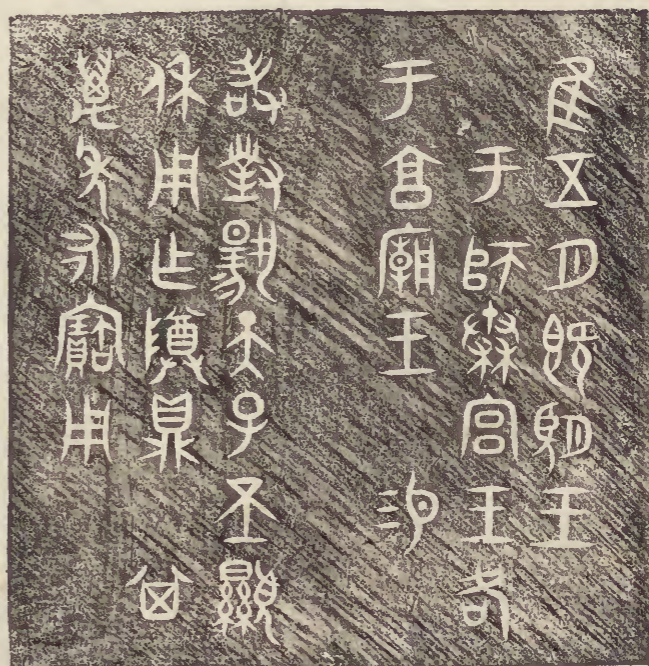 隹五月既望王
于師秦宮王各
于享廟王
敢對揚天子丕顯
休用乍尊鼎其
萬年永寶用